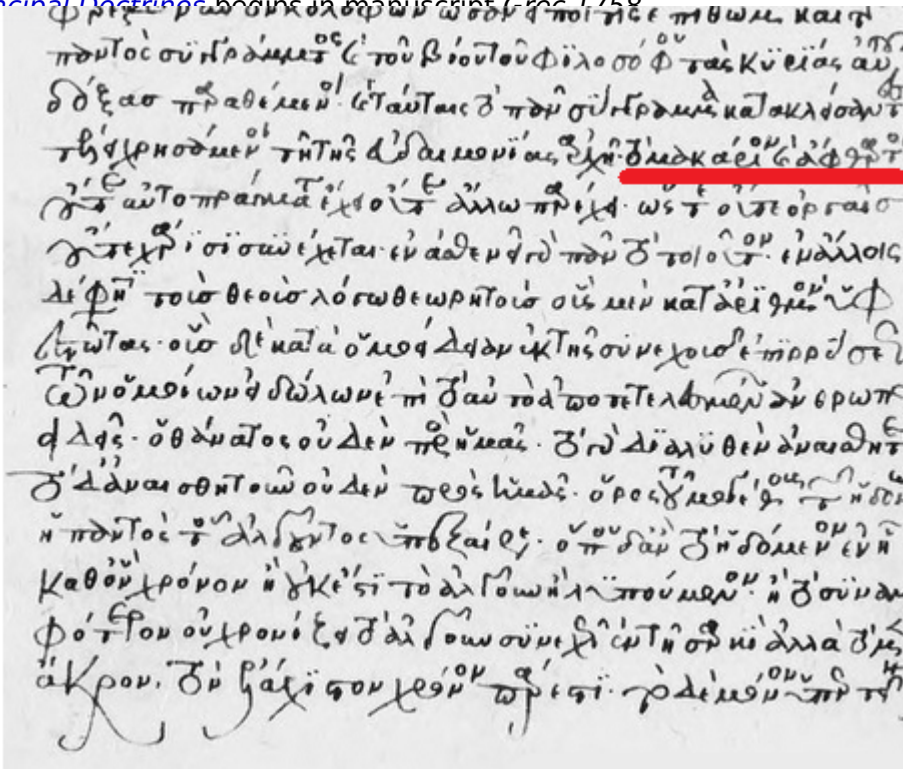 ncipal Doctrines begins in manuscript Grec 1758
κολοφῶν ὡς ἂν εἴποι τις ἐπιθῶμεν καὶ τ
παντὸς συγγράμματος καὶ τοῦ βίου τοῦ φιλοσόφου τὰς κυρίας αὐτοῦ
δόξας παραθέμενοι καὶ ταύταις τὸ πᾶν σύγγραμμα κατακλείσαντ
χρησάμενοι τῇ τῆς εὐδαιμονίας ἀρχῇ· τὸ μακάριον καὶ ἄφθαρτ
οὔτε αὐτὸ πράγματα ἔχει οὔτε ἄλλω παρέχει· ὥστε οὔτε ὀργαῖσ
οὔτε χάρισι συνέχεται· ἐν ἀσθενεῖ γὰρ πᾶν τὸ τοιοῦτον· ἐν ἄλλοις
δέ φησι τοῖσ θεοῖσ λόγω θεωρητοῖσ οἷς μὲν κατ' ἀριθμὸν ὑφ
εστῶτας· οἷσ δὲ κατὰ ὁμοείδειαν ἐκ τῆς συνεχοῖσ ἐπιρρύσε
τῶν ὁμοίων εἰδώλων ἐπὶ τὸ αὐτὸ ἀποτετελεσμένων ἀνθρωπ
ειδεῖς· ὁ θάνατος οὐδὲν πρὸς ἡμᾶς· τὸ γὰρ διαλυθὲν ἀναισθητε
τὸ δ' ἀναισθητοῦν οὐδὲν πρὸς ἡμᾶς· ὅρος τοῦ μεγέθους τῶν ἡδον
ἡ παντὸς τοῦ ἀλγοῦντος ὑπεξαίρεσις· ὅπου δ' ἂν τὸ ἡδόμενον ἐνῇ
καθ' ὃν ἂν χρόνον ᾖ οὐκ ἔστι τὸ ἀλγοῦν ἢ λυπούμενον· ἢ τὸ συναμ
φότερον οὐ χρονίζει τὸ ἀλγοῦν συνεχῶς ἐν τῇ σαρκὶ ἀλλὰ τὸ μὲ
ἄκρον· τὸν ἐλάχιστον χρόνον πάρεστι· τὸ δὲ μόνον ὑπερτ